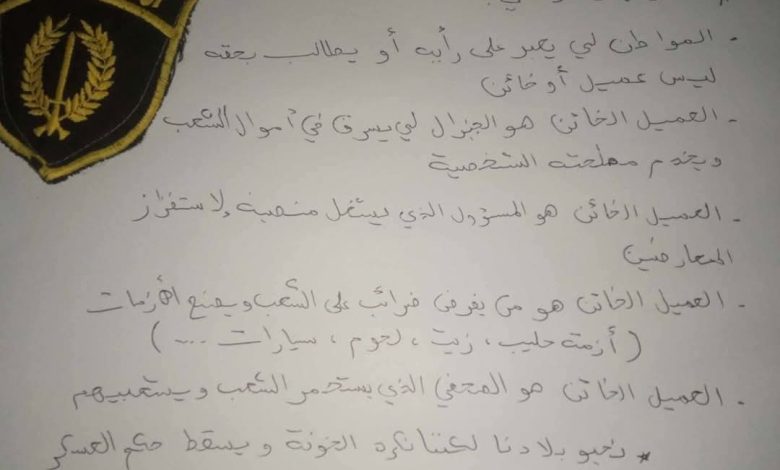 - المواطن لي يعبر على رأيه أو يطالب بحقه
ليس عميل أو خائن
- العميل الخائن هو الجنرال لي يسرق في أموال الشعب
ويخدم مصلحته الشخصية
- العميل الخائن هو المسؤول الذي يستغل منصبه لاستفزاز
المعارضين
- العميل الخائن هو من يفرض ضرائب على الشعب ويصنع الأزمات
( أزمة حليب، زيت، لحوم، سيارات .... )
- العميل الخائن هو الصحفي الذي يستحمر الشعب ويستغبيهم
* نحبو بلادنا لكننا نكره الخونة ويسقط حكم العسكر